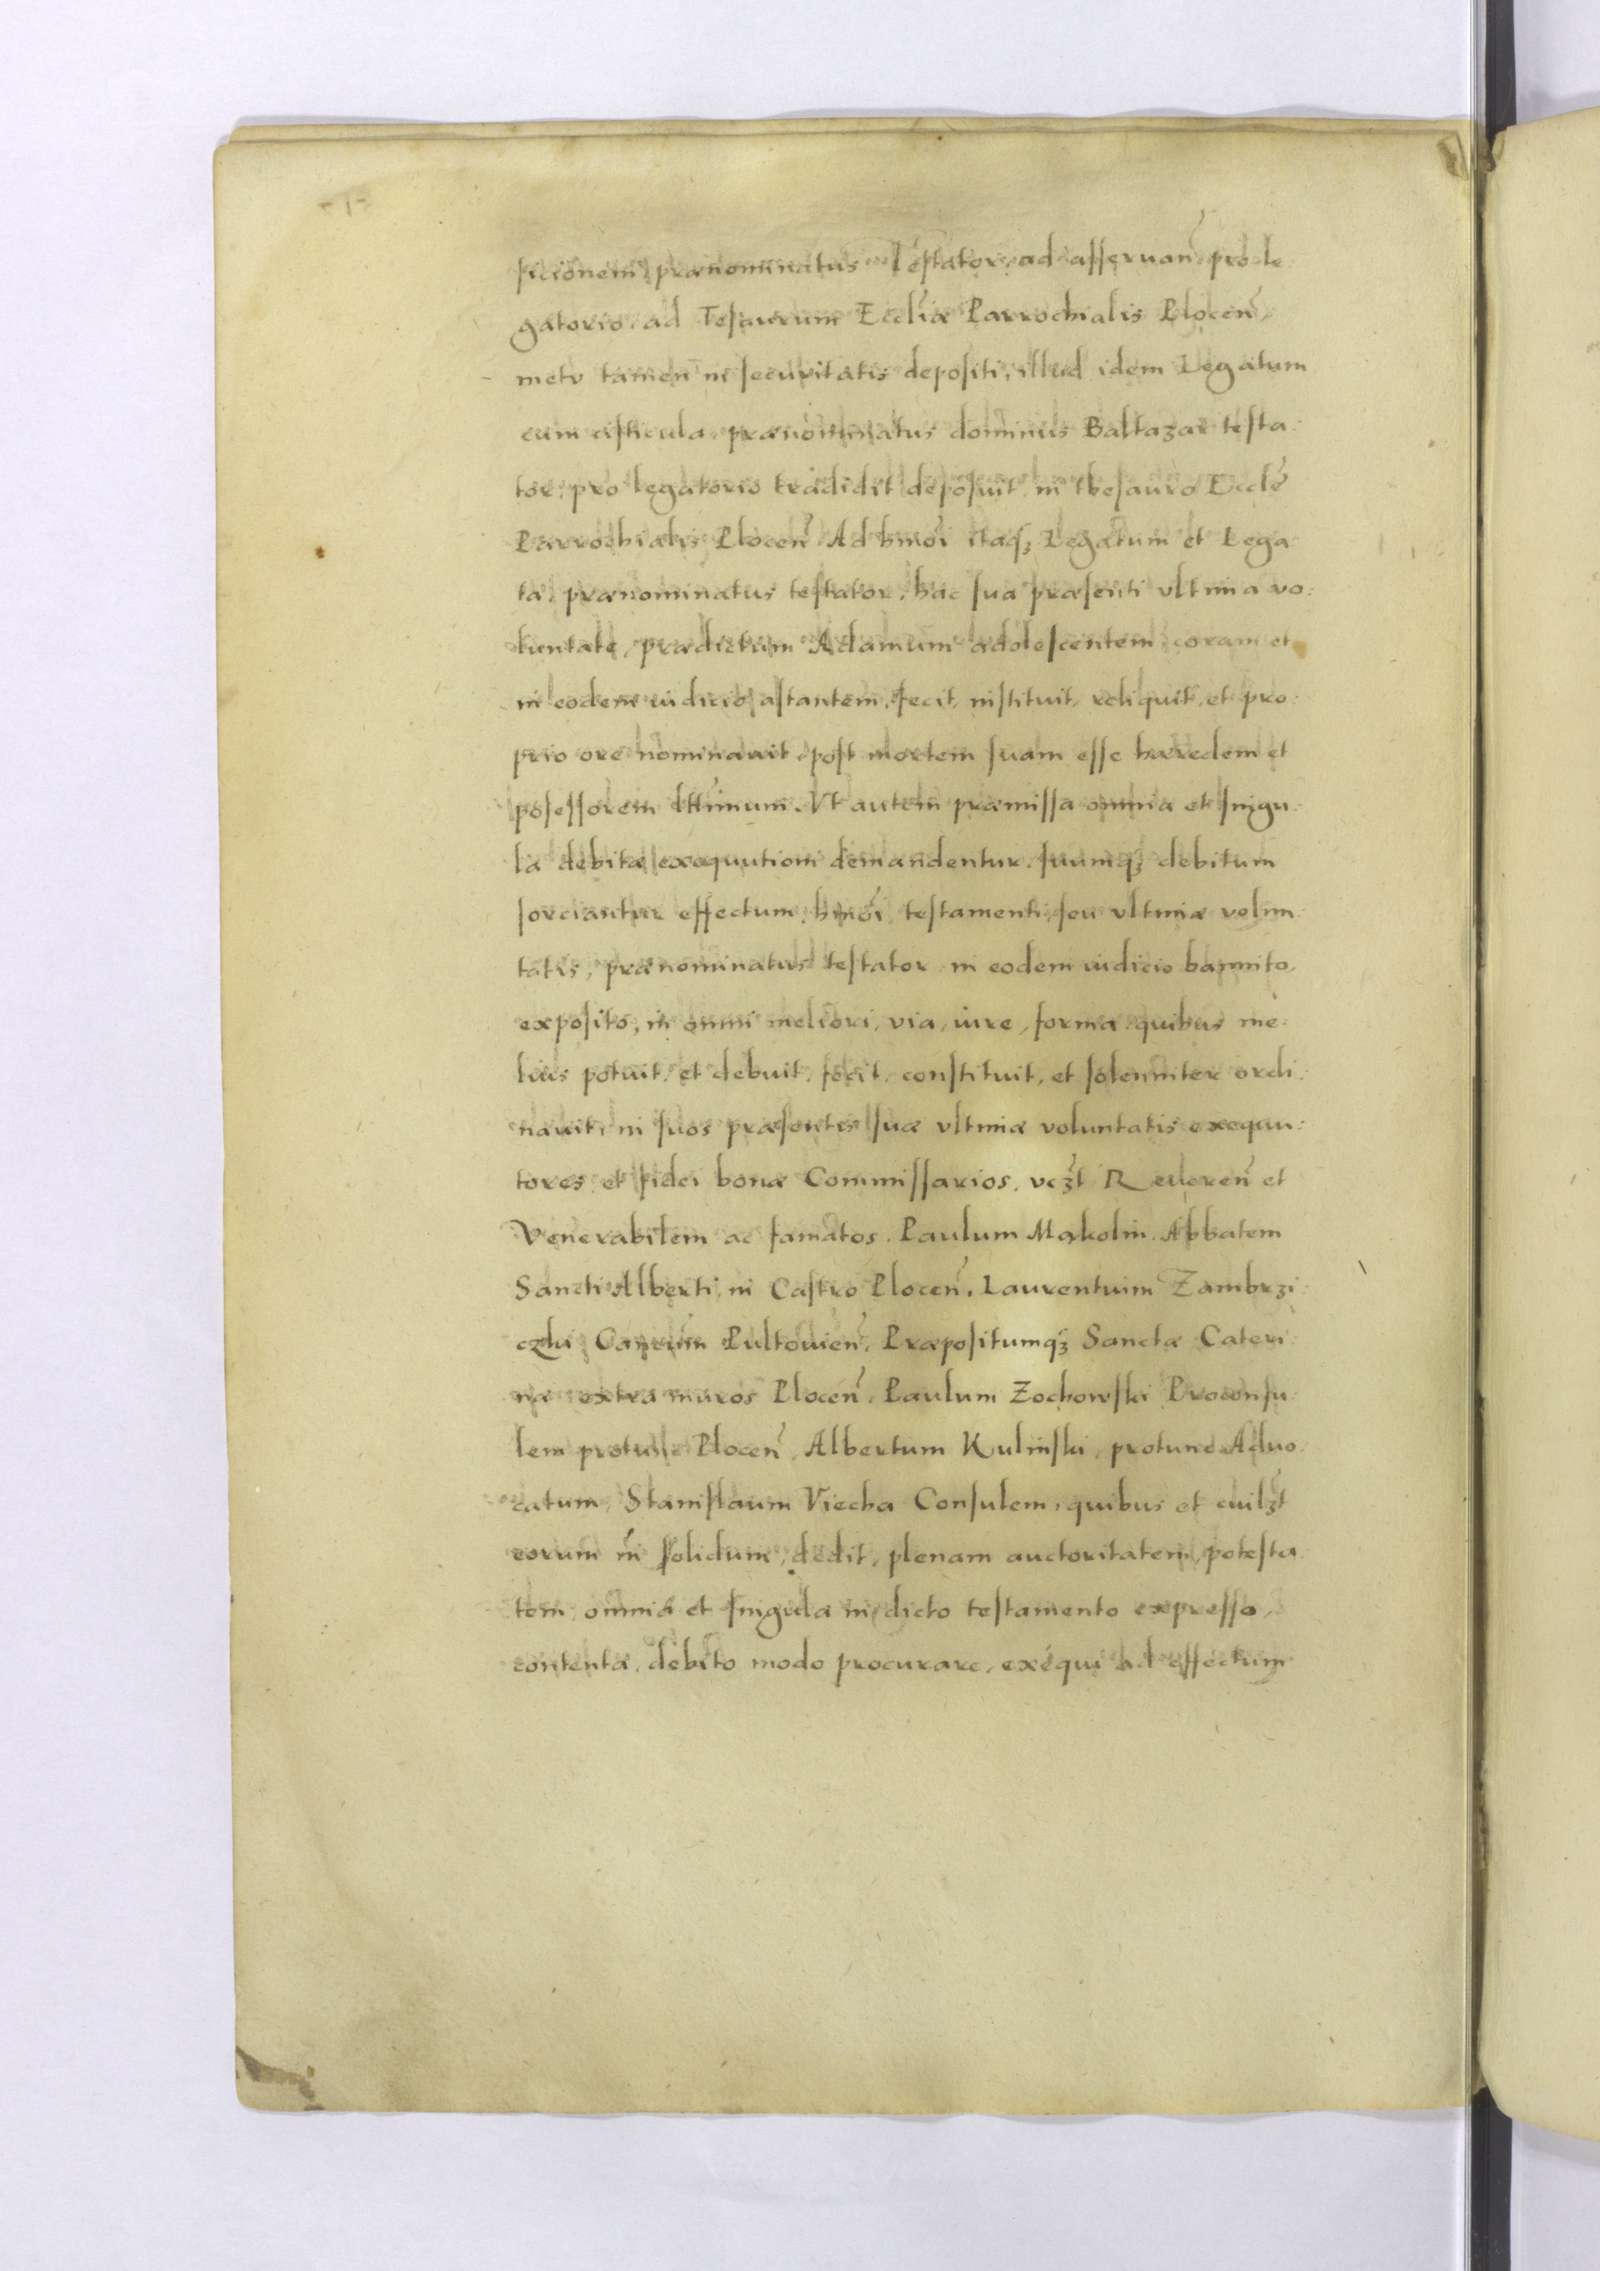 sicionem prænominatus Testator, ad asseruan̄ pro le
gatorio, ad Tesaurum Eccl̄iæ Parrochialis Plocen̄,
metu tamen in securitatis depositi, illud idem Legatum
cum cisticula, prænominatus dominus Baltazar testa:
tor, pro legatorio tradidit deposuit, in thesauro Eccl̄e
Parrochialis Plocen̄ Ad hmōi itaqʒ Legatum et Lega
ta, prænominatus testator, hac sua præsenti vltima vo:
luntate, prædictum Adamum adolescentem, coram et
in eodem iudicio astantem, fecit, instituit, reliquit, et pro:
prio ore nominauit post mortem suam esse hæredem et
posessorem lttimum. Vt autem præmissa omnia et singu:
la debitæ exequutioni demandentur, suumqʒ debitum
sorciantur effectum, hmōi testamenti, seu vltimæ volun:
tatis, prænominatus testator in eodem iudicio bannito,
exposito, in omni meliori, via, iure, forma quibus me:
lius potuit, et debuit, fecit, constituit, et solenniter ordi:
nauit, in suos præsentis suæ vltimæ voluntatis exequu:
tores et fidei bonæ Commissarios, vcʒt Reueren̄ et
Venerabilem ac famatos. Paulum Makolin, Abbatem
Sancti Alberti, in Castro Plocen̄, Laurentium Zambrzi
czki Pultouien̄, Præpositumqʒ Sanctæ Cateri
næ extra muros Plocen̄, Paulum Zochowski Proconsu
lem protunc Plocen̄, Albertum Kulinski, protunc Aduo
catum, Stanislaum Viecha Consulem, quibus et cuilʒt
eorum in solidum, dedit, plenam auctoritatem, potesta
tem, omnia et singula in dicto testamento expressa,
contenta, debito modo procurare, exequi ad effectum